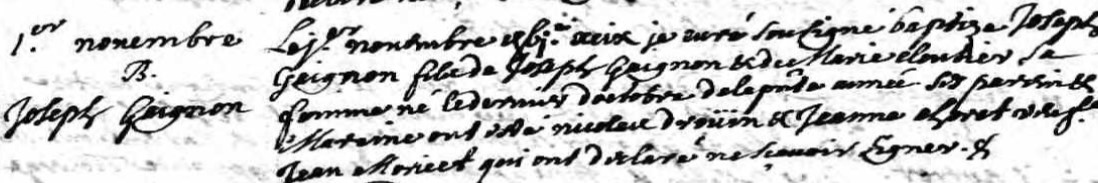 1.er novembre
B.
Joseph Gaignon
Le j.er novembre xbj.c xcix je curé soubsigné baptizé Joseph
Gaignon fils de Joseph Gaignon & de Marie cloutier sa
femme né le dernier d'octobre de la pnte année ses parrin &
Marraine ont esté nicolas Drouin & Jeanne
Jean Moricet qui ont declaré ne sçavoir signer.